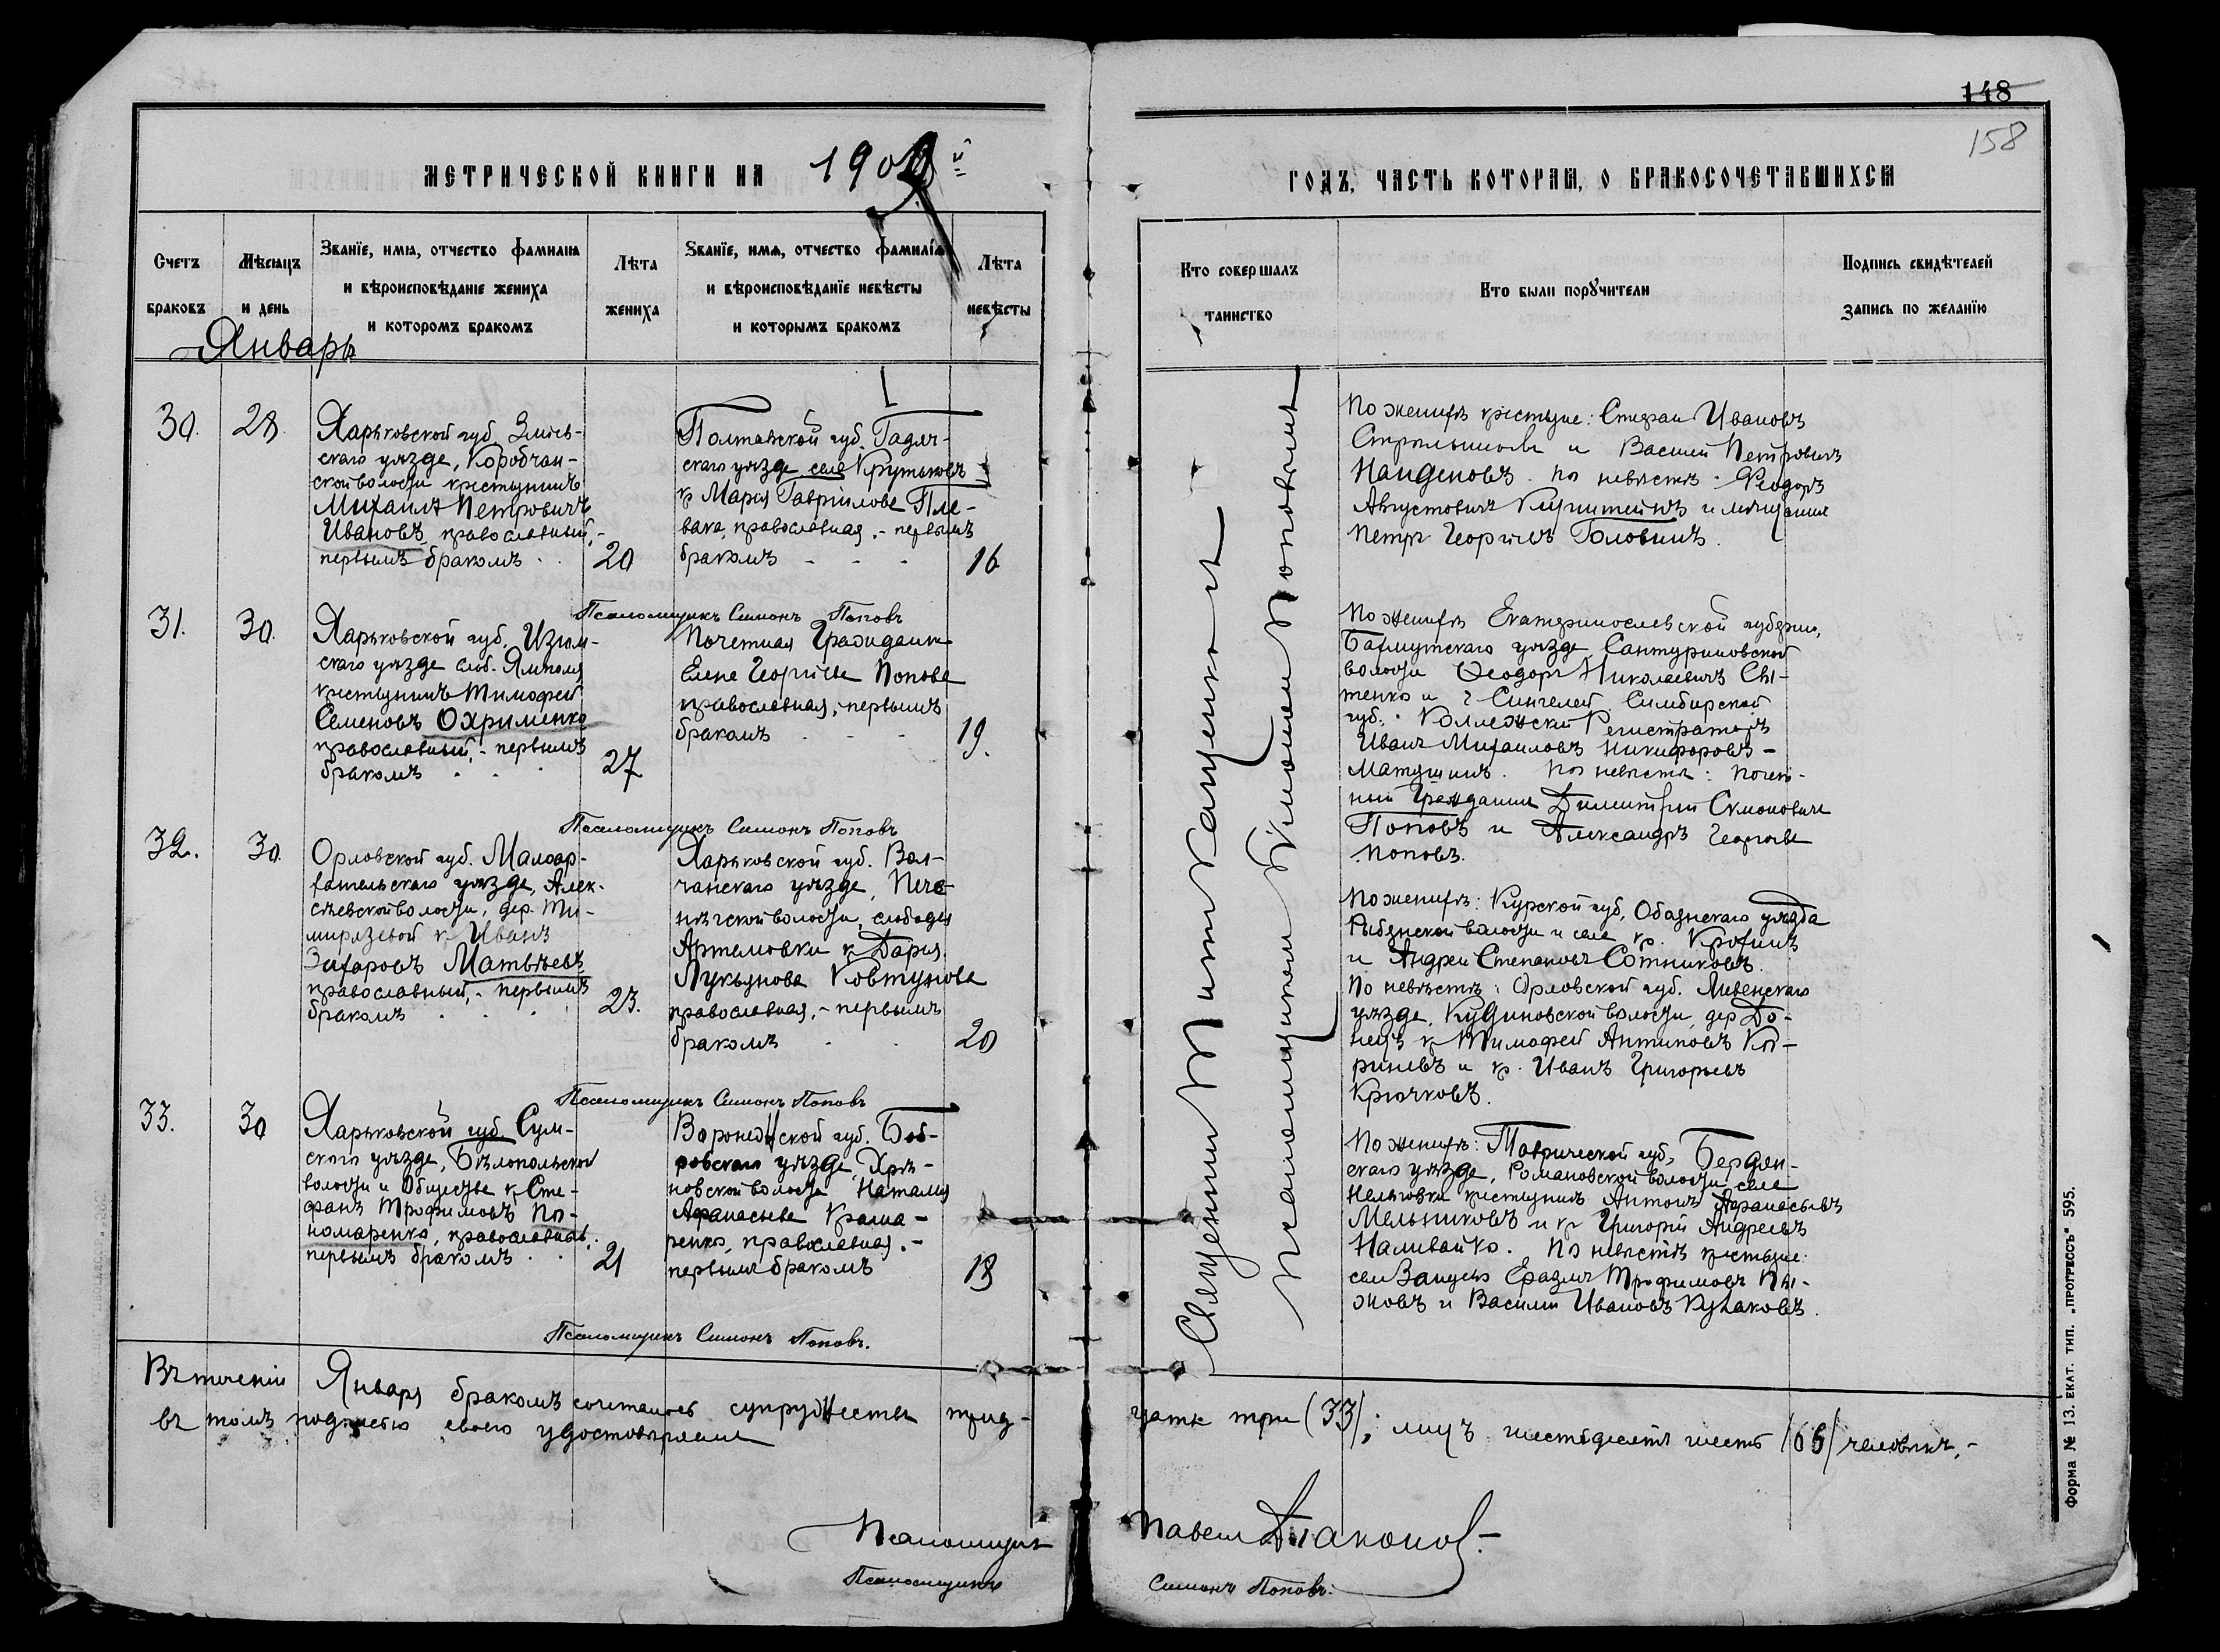 148
158
МЕТРИЧЕСКОЙ КНИГИ НА 1909й
ГОДЪ, ЧАСТЬ КОТОРАЯ, О БРАКОСОЧЕТАВШИХСЯ
Счетъ
браковъ
Мѣсяцъ
и день
Званїе, имя, отчество фамилїя
и вѣроисповѣданїе жениха
и которомъ бракомъ
Лѣта
жениха
Званїе, имя, отчество фамилїя
и вѣроисповѣданїе невѣсты
и которымъ бракомъ
Лѣта
невѣсты
Кто совершалъ
таинство
Кто были порѹчители
Подпись свидѣтелей
запись по желанїю
Январь
30.
28.
Харьковской губ. Зміев-
скаго уѣзда, Коробчан-
ской волости крестьянинъ
Михаилъ Петровичъ
Ивановъ, православный,-
первымъ бракомъ
20
Полтавской губ. Гадяч-
скаго уѣзда села Крутьковъ
кр Марія Гавріилова Пле-
вака, православная,- первымъ
бракомъ
16
По женихѣ крестьяне: Стефан Ивановъ
и Василій Петровичъ
Найденовъ. по невѣстѣ: Ѳеодоръ
Августовичъ и мѣщанинъ
Петръ Георгіевъ Головинъ.
Псаломщикъ Симонъ Поповъ
31.
30.
Харьковской губ. Изюм-
скаго уѣзда слоб. Ямполя
крестьянинъ Тимофей
Семеновъ Охрименко
православный,- первымъ
бракомъ
27
Почетная Гражданка
Елена Георгіева Попова
православная,- первымъ
бракомъ
19.
По женихѣ Екатеринославской губерніи,
Бахмутскаго уѣзда, Сантуриновской
волости Ѳеодоръ Николаевичъ Сы-
тенко и г Сингелей Симбирской
губ. Коллежскій Регистраторъ
Иванъ Михаиловъ Никифоровъ-
Матушинъ. По невѣстѣ: почет-
ный Гражданинъ Димитрій Симоновичъ
Поповъ и Александръ Георгіевъ
Поповъ.
Псаломщикъ Симонъ Поповъ
32.
30.
Орловской губ. Малоар-
хангельскаго уѣзда, Алек-
сѣевской волости, дер. Ти-
мирязевой кр Иванъ
Захаровъ Матвѣевъ
православный,- первымъ
бракомъ
23.
Харьковской губ. Вол-
чанскаго уѣзда, Пече-
нѣгской волости, слободы
Артемовки кр Дарія
Лукьянова Ковтунова
православная,- первымъ
бракомъ
20
По женихѣ: Курской губ, Обоянскаго уѣзда
Рыбинской волости и села кр.
и Андрей Степановъ Сотниковъ.
По невѣстѣ: Орловской губ. Ливенскаго
уѣзда, волости дер До-
нецъ кр Тимофей Антиповъ Ко-
риневъ и кр. Иванъ Григорьевъ
Крючковъ.
Псаломщикъ Симонъ Поповъ
33.
30
Харьковской губ. Сум-
скаго уѣзда, Бѣлопольской
волости и Общества кр Сте-
фанъ Трофимовъ По-
номаренко, православный
первымъ бракомъ
21
Воронежской губ. Боб-
ровскаго уѣзда, Хрѣ-
новской волости Наталія
Афанасьева Краша-
ренко, православная,-
первымъ бракомъ
18
По женихѣ: Таврической губ, Бердян-
скаго уѣзда, Романовской волости, села
Нельговки крестьянинъ Антонъ Афанасьевъ
Мельниковъ и кр Григорій Андреевъ
Наливайко. По невѣстѣ крестьяне:
Еразмъ Трофимовъ Пы-
жовъ и Василій Ивановъ Кулаковъ.
Псаломщикъ Симонъ Поповъ.
Священникъ
Псаломщикъ Симонъ Поповъ
Въ теченіи Января бракомъ сочеталось супружествъ трид-
цать три (33); лицъ шестьдесятъ шесть (66) человѣкъ,-
въ томъ подписью своею удостовѣряемъ
Псаломщикъ Павелъ Діаконовъ.-
Псаломщикъ Симонъ Поповъ.
Форма № 13. ЕКАТ. ТИП. „ПРОГРЕССЪ“ 595.